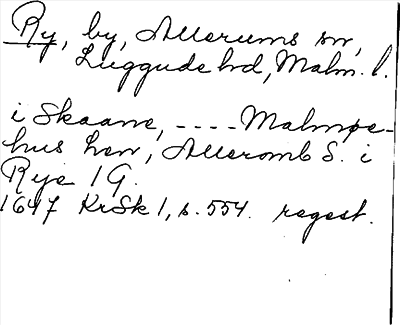 Ry, by, Allerums sn,
Luggude hd, Malm. l.
i Skaane, ---- Malmøe-
hus Len, Alleromb S. i
Rye 1 G.
1647 KrSk 1, s. 554. regest.